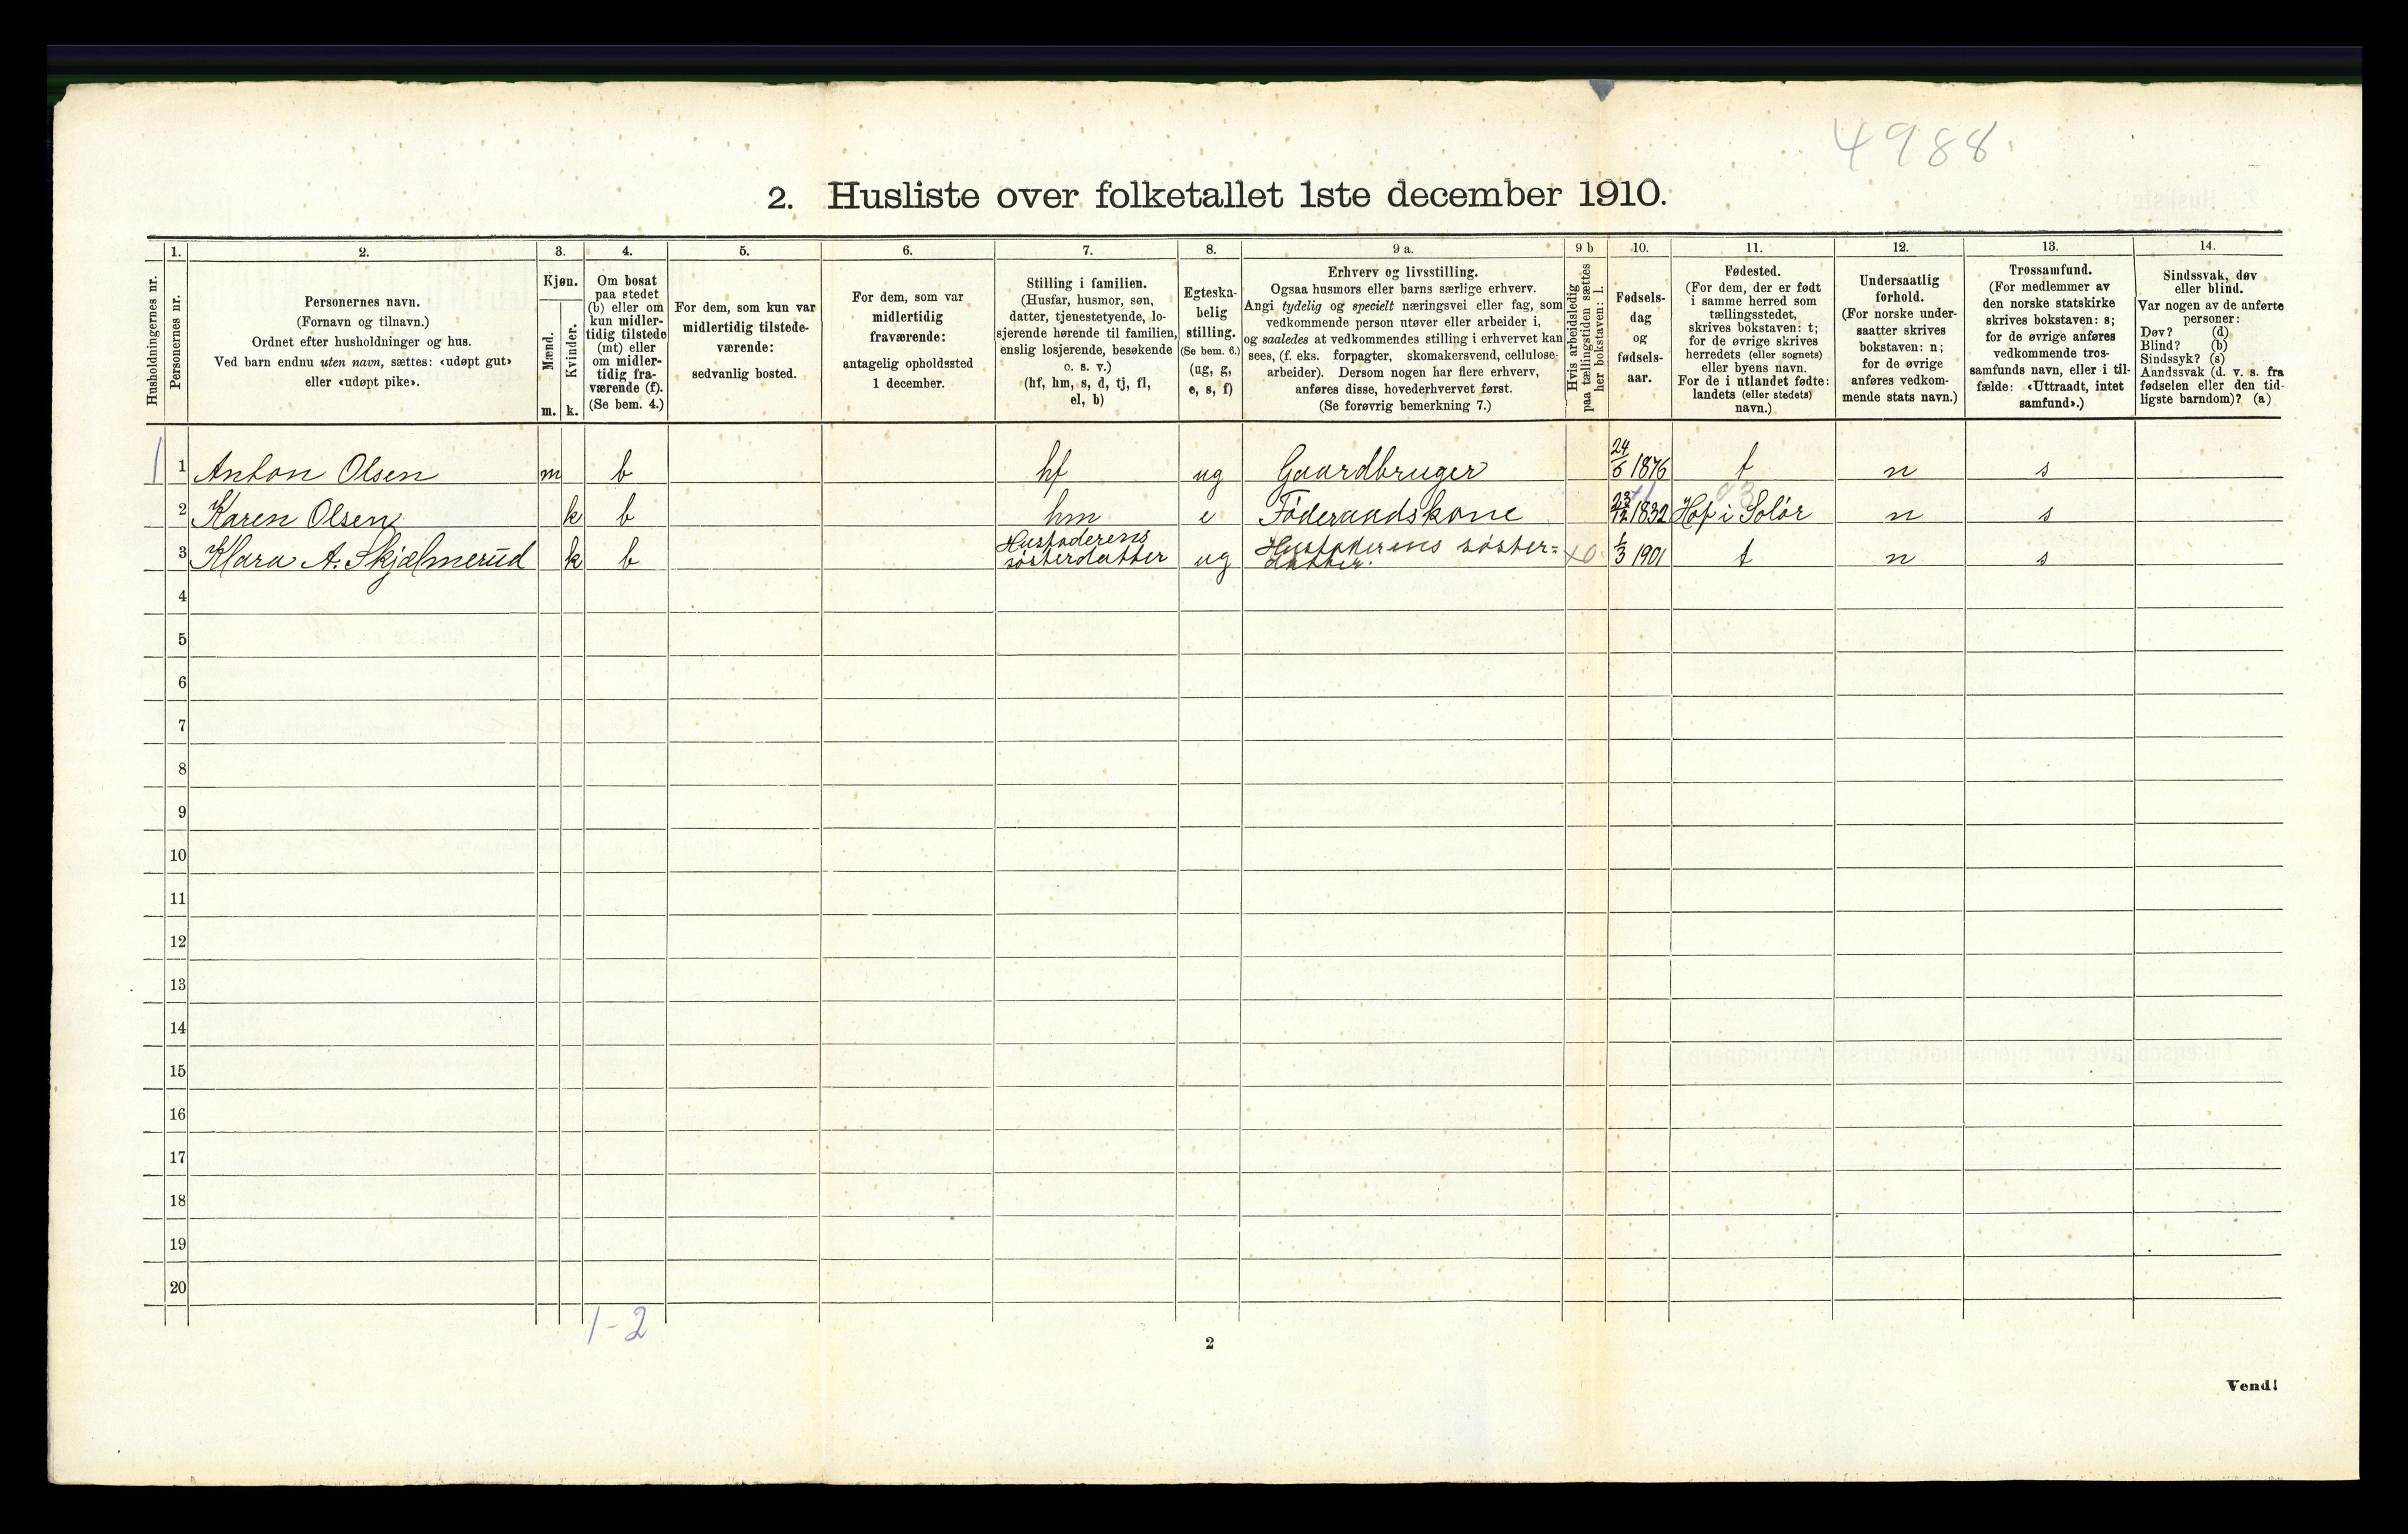 4988
2. Husliste over folketallet 1ste december 1910.
Husholdningernes nr.
1.
Personernes nr.
2.
Personernes navn.
(Fornavn og tilnavn.)
Ordnet efter husholdninger og hus.
Ved barn endnu uten navn, sættes: «udøpt gut»
eller «udøpt pike».
3.
Kjøn.
Mænd.
Kvinder.
m. k.
4.
Om bosat
paa stedet
(b) eller om
kun midler-
tidig tilstede
(mt) eller
om midler-
tidig fra-
værende (f).
(Se bem. 4.)
5.
For dem, som kun var
midlertidig tilstede-
værende:
sedvanlig bosted.
6.
For dem, som var
midlertidig
fraværende:
antagelig opholdssted
1 december.
7.
Stilling i familien.
(Husfar, husmor, søn,
datter, tjenestetyende, lo-
sjerende hørende til familien,
enslig losjerende, besøkende
o. s. v.)
(hf, hm, s, d, tj, fl,
el, b)
8.
Egteska-
belig
stilling.
(Se bem. 6.)
(ug, g,
e, s, f)
9 a.
Erhverv og livsstilling.
Ogsaa husmors eller barns særlige erhverv.
Angi tydelig og specielt næringsvei eller fag, som
vedkommende person utøver eller arbeider i,
og saaledes at vedkommendes stilling i erhvervet kan
sees, (f. eks. forpagter, skomakersvend, cellulose-
arbeider). Dersom nogen har flere erhverv,
anføres disse, hovederhvervet først.
(Se forøvrig bemerkning 7.)
9 b
Hvis arbeidsledig
paa tællingstiden sættes
her bokstaven: l.
10.
Fødsels-
dag
og
fødsels-
aar.
11.
Fødested.
(For dem, der er født
i samme herred som
tællingsstedet,
skrives bokstaven: t;
for de øvrige skrives
herredets (eller sognets)
eller byens navn.
For de i utlandet fødte:
landets (eller stedets)
navn.)
12.
Undersaatlig
forhold.
(For norske under-
saatter skrives
bokstaven: n;
for de øvrige
anføres vedkom-
mende stats navn.)
13.
Trossamfund.
(For medlemmer av
den norske statskirke
skrives bokstaven: s;
for de øvrige anføres
vedkommende tros-
samfunds navn, eller i til-
fælde: «Uttraadt, intet
samfund».)
14.
Sindssvak, døv
eller blind.
Var nogen av de anførte
personer:
Døv? (d)
Blind? (b)
Sindssyk? (s)
Aandssvak (d. v. s. fra
fødselen eller den tid-
ligste barndom)? (a)
1 1 Anton Olsen m b hf ug Gaardbruger 24/5 1876 t n s
2 Karen Olsen k b hm e Föderaadskone 1832 Hof i Solör n s
3 Klara A. Skjælmerud k b Husfaderens søsterdatter ug Husfaderens søster=
datter. 1/3 1901 t n s
4
5
6
7
8
9
10
11
12
13
14
15
16
17
18
19
20
1-2
2
Vend!